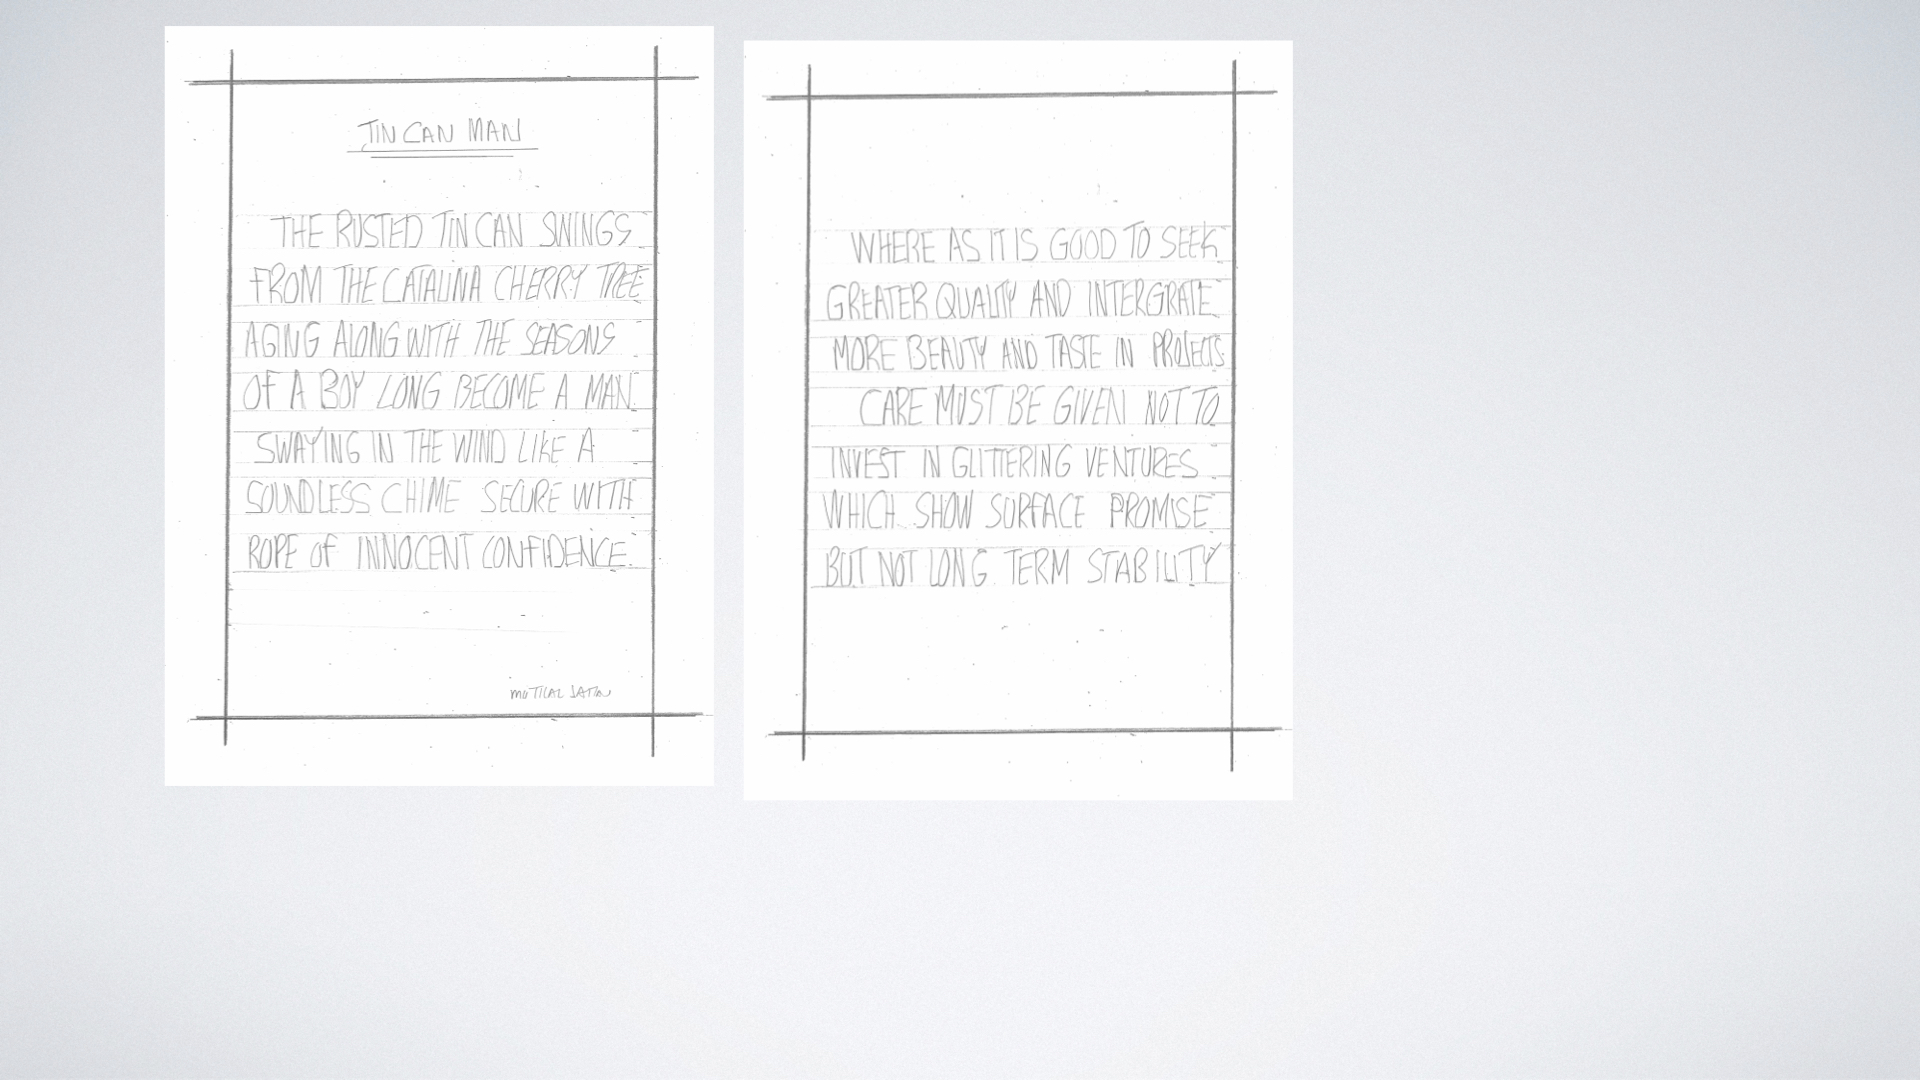 TIN CAN MAN
THE RUSTED TIN CAN SWINGS
FROM THE CATALINA CHERRY TREE
AGING ALONG WITH THE SEASONS
OF A BOY LONG BECOME A MAN.
SWAYING IN THE WIND LIKE A
SOUNDLESS CHIME SECURE WITH
ROPE of INNOCENT CONFIDENCE.
WHERE AS IT IS GOOD TO SEEK
GREATER QUALITY AND INTERGRATE
MORE BEAUTY AND TASTE IN PROJECTS
CARE MUST BE GIVEN NOT TO
INVEST IN GLITTERING VENTURES
WHICH SHOW SURFACE PROMISE
BUT NOT LONG TERM STABILITY